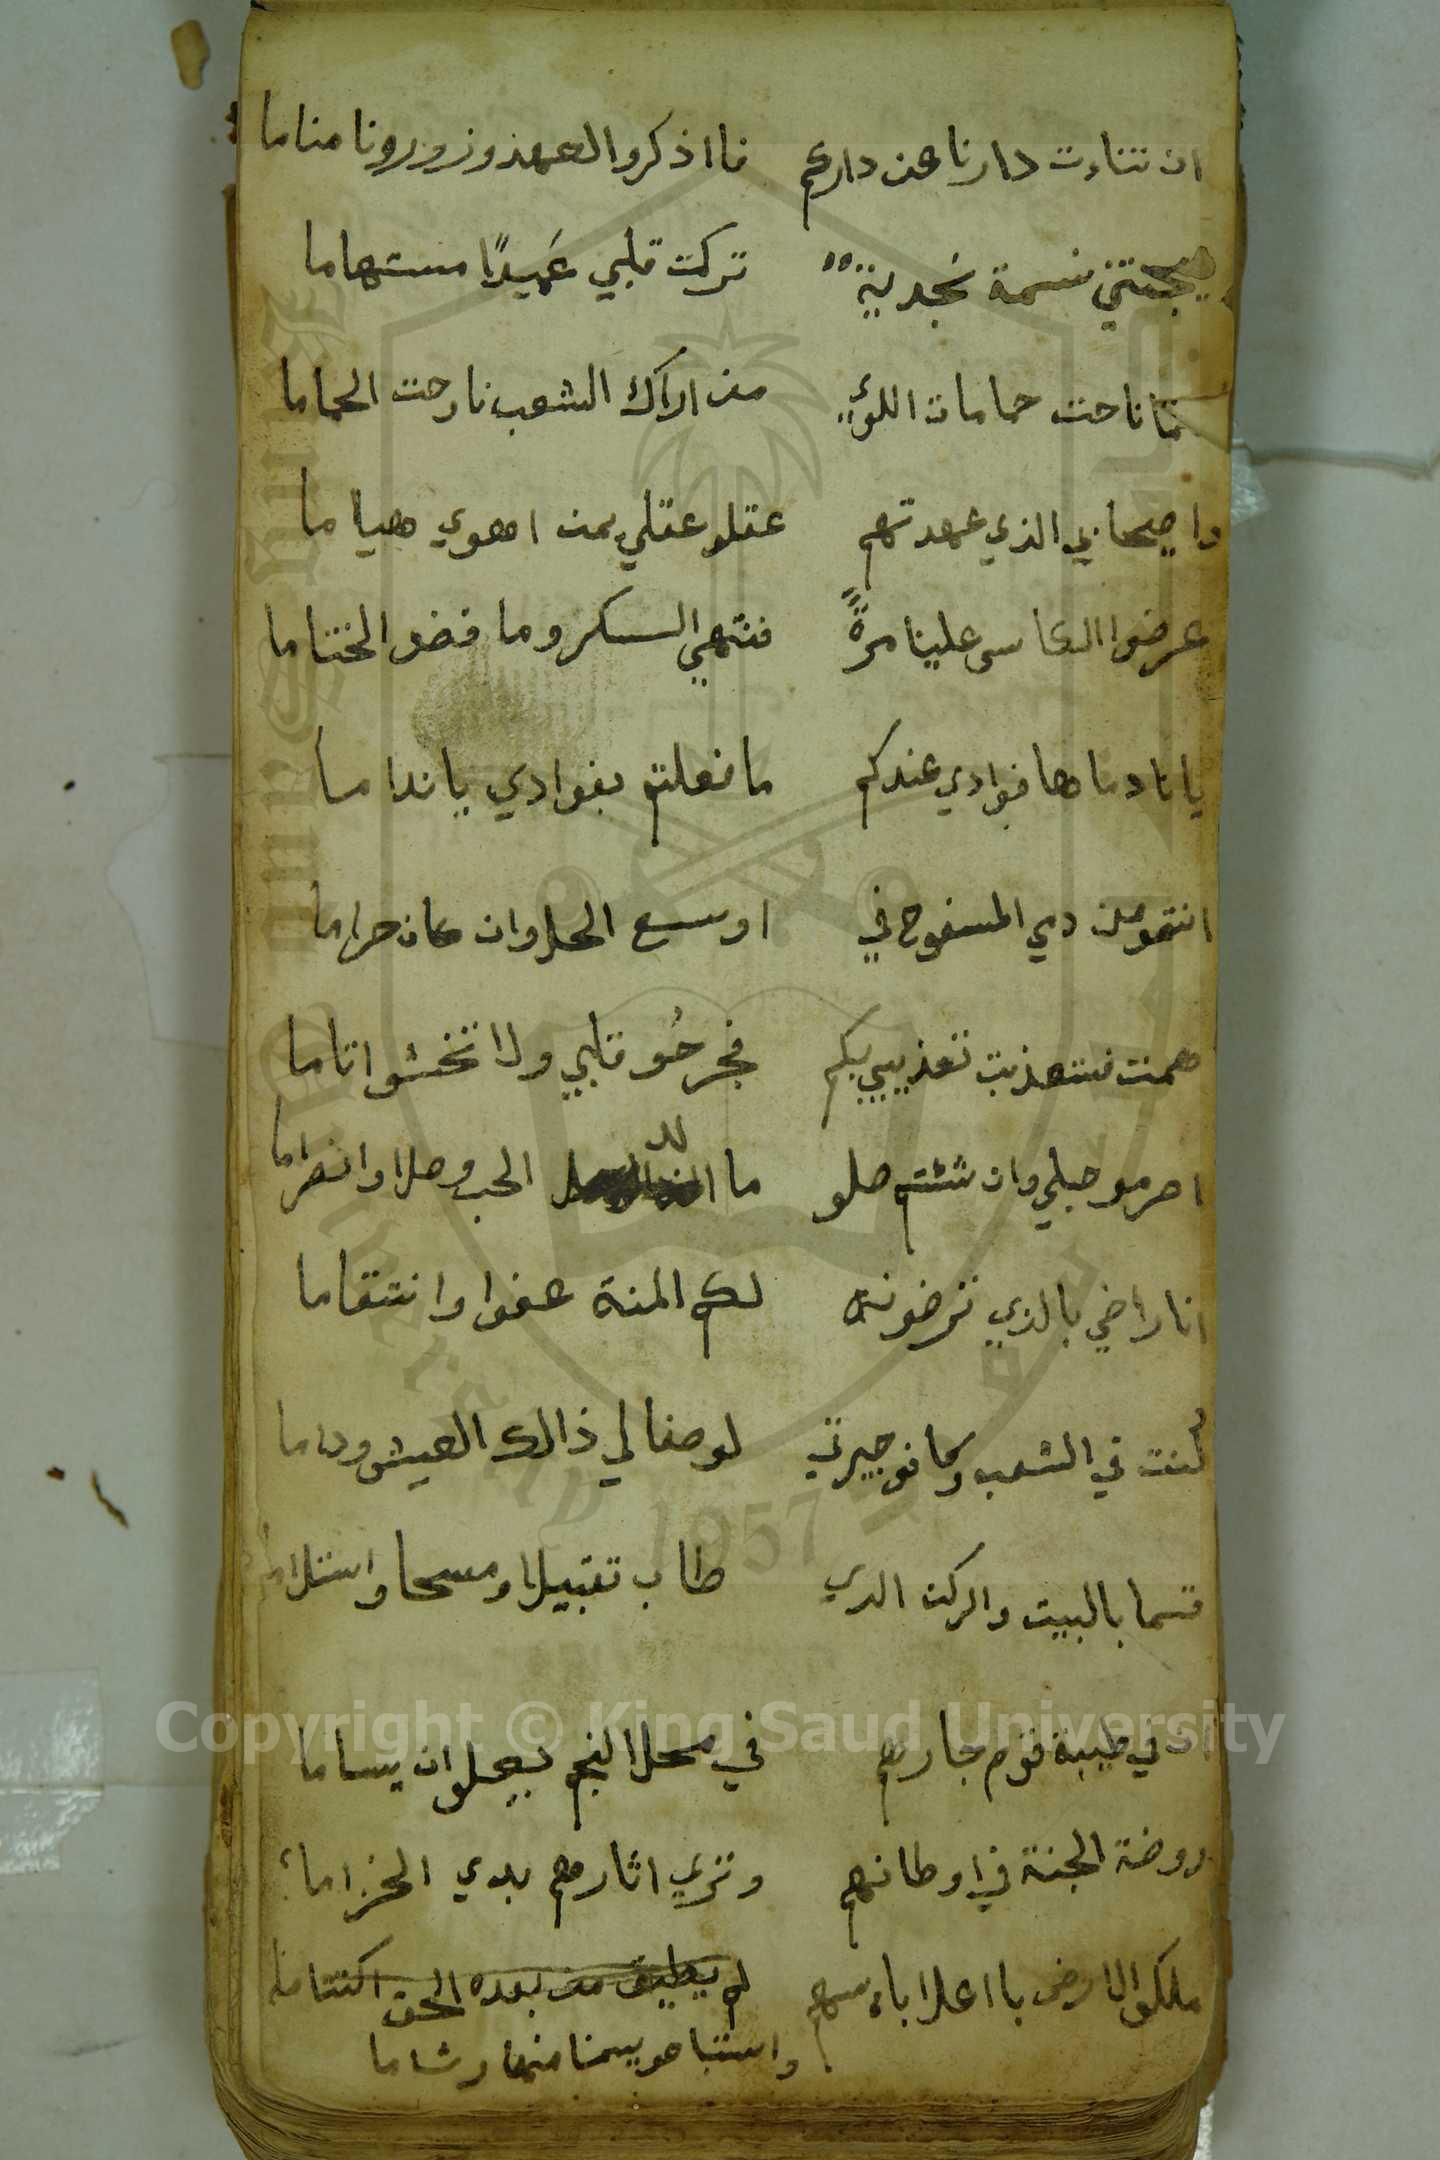 ان تناءت دارنا عن داركم فااذكروا العهد وزورونا مناما
هيجتني نسمة نجدية تركت قلبي عَميدًا مستهاما
ناحت حمامات اللوي من اراك الشعب نارحت الحماما
واصحابي الذي عهدتهم عقلو عقلي بمن اهوي هياما
عرضوا الكاسى علينا مرةً فنتهي السكر وما فضو الختاما
يا نادماها فوادي عندكم ما فعلتم بفوادي يا نداما
انتمو من دمي المسفوح في اوسع الحل وان كان حراما
همت فستعذبت تعذيبي بكم فجرحُو قلبي ولا تخشوا اثاما
احرمو حبلي وان شئتم صلو ما الذ الحب وصلا وانصراما
انا راضي بالذي ترضونه لكم المنة عفوا وانتقاما
كُنت في الشعب وكانو جيرتي لو صفا لي ذالك العيش وداما
قسما بالبيت والركن الذي طاب تقبيلا ومسحا واستلاما
ان في طيبة قوم جارهم في محل النجم يعلو ان يساما
روضة الجنة في اوطانهم وتري اثارهم بدي الخزاما
ملكو الارض با اعلا باسهم لم يطيق من بعده الحق اكتتاما
واستباحو يمنا منها وشاما
Copyright © King Saud University
King Saud University
1957